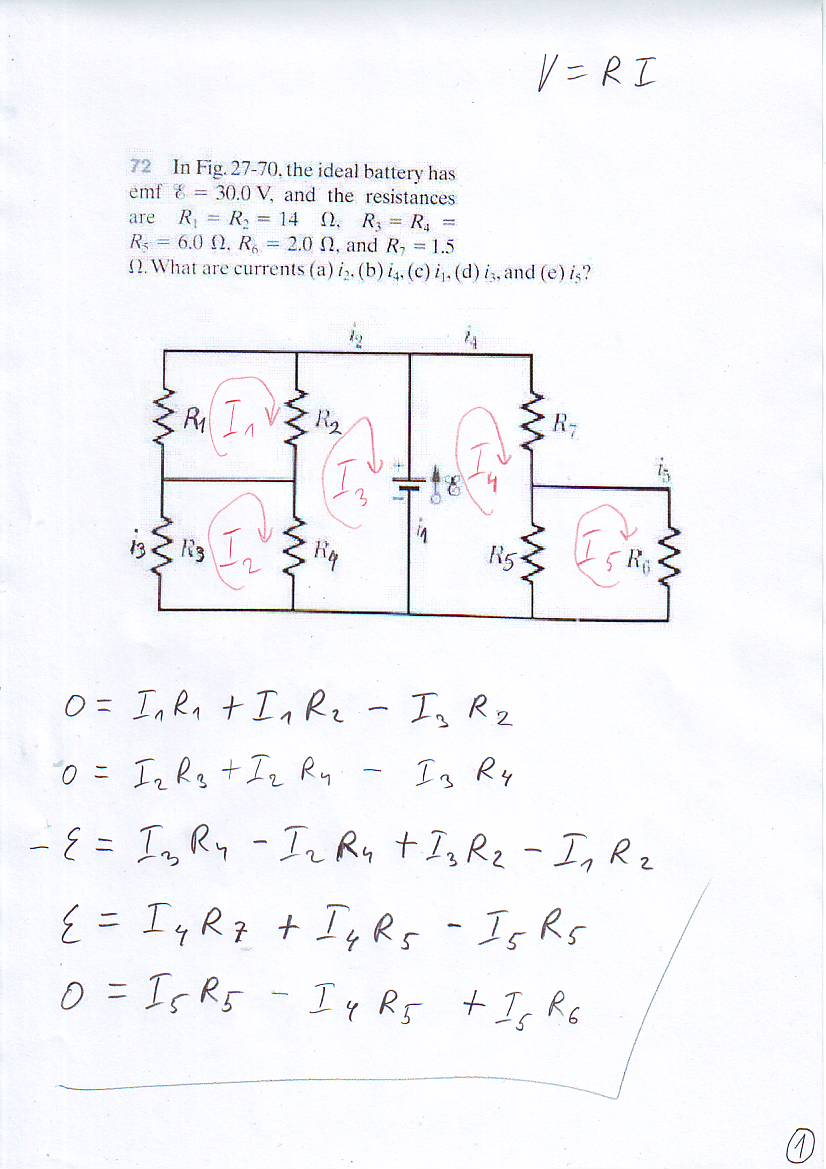 V = R I
72 In Fig. 27-70, the ideal battery has
emf ℰ = 30.0 V, and the resistances
are R₁ = R₂ = 14 Ω, R₃ = R₄ =
R₅ = 6.0 Ω, R₆ = 2.0 Ω, and R₇ = 1.5
Ω. What are currents (a) i₂, (b) i₄, (c) i₁, (d) i₃, and (e) i₅?
i₂ i₄
R₁ I₁ R₂ I₃ + ℰ I₄ R₇
i₅
i₃ R₃ I₂ R₄ - i₁ R₅ I₅ R₆
0 = I₁ R₁ + I₁ R₂ - I₃ R₂
0 = I₂ R₃ + I₂ R₄ - I₃ R₄
- ℰ = I₃ R₄ - I₂ R₄ + I₃ R₂ - I₁ R₂
ℰ = I₄ R₇ + I₄ R₅ - I₅ R₅
0 = I₅ R₅ - I₄ R₅ + I₅ R₆
1